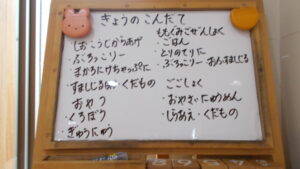 きょうのこんだて
しおこうじからあげ
ぶろっこりー
まかろにけちゃっぷに
すましじる くだもの
おやつ
くろぼう
ぎゅうにゅう
ももぐみごぜんしょく
・ごはん
・とりのてりに
・ぶろっこりー おふすましじる
ごごしょく
・おやさいにゅうめん
・しらあえ・くだもの